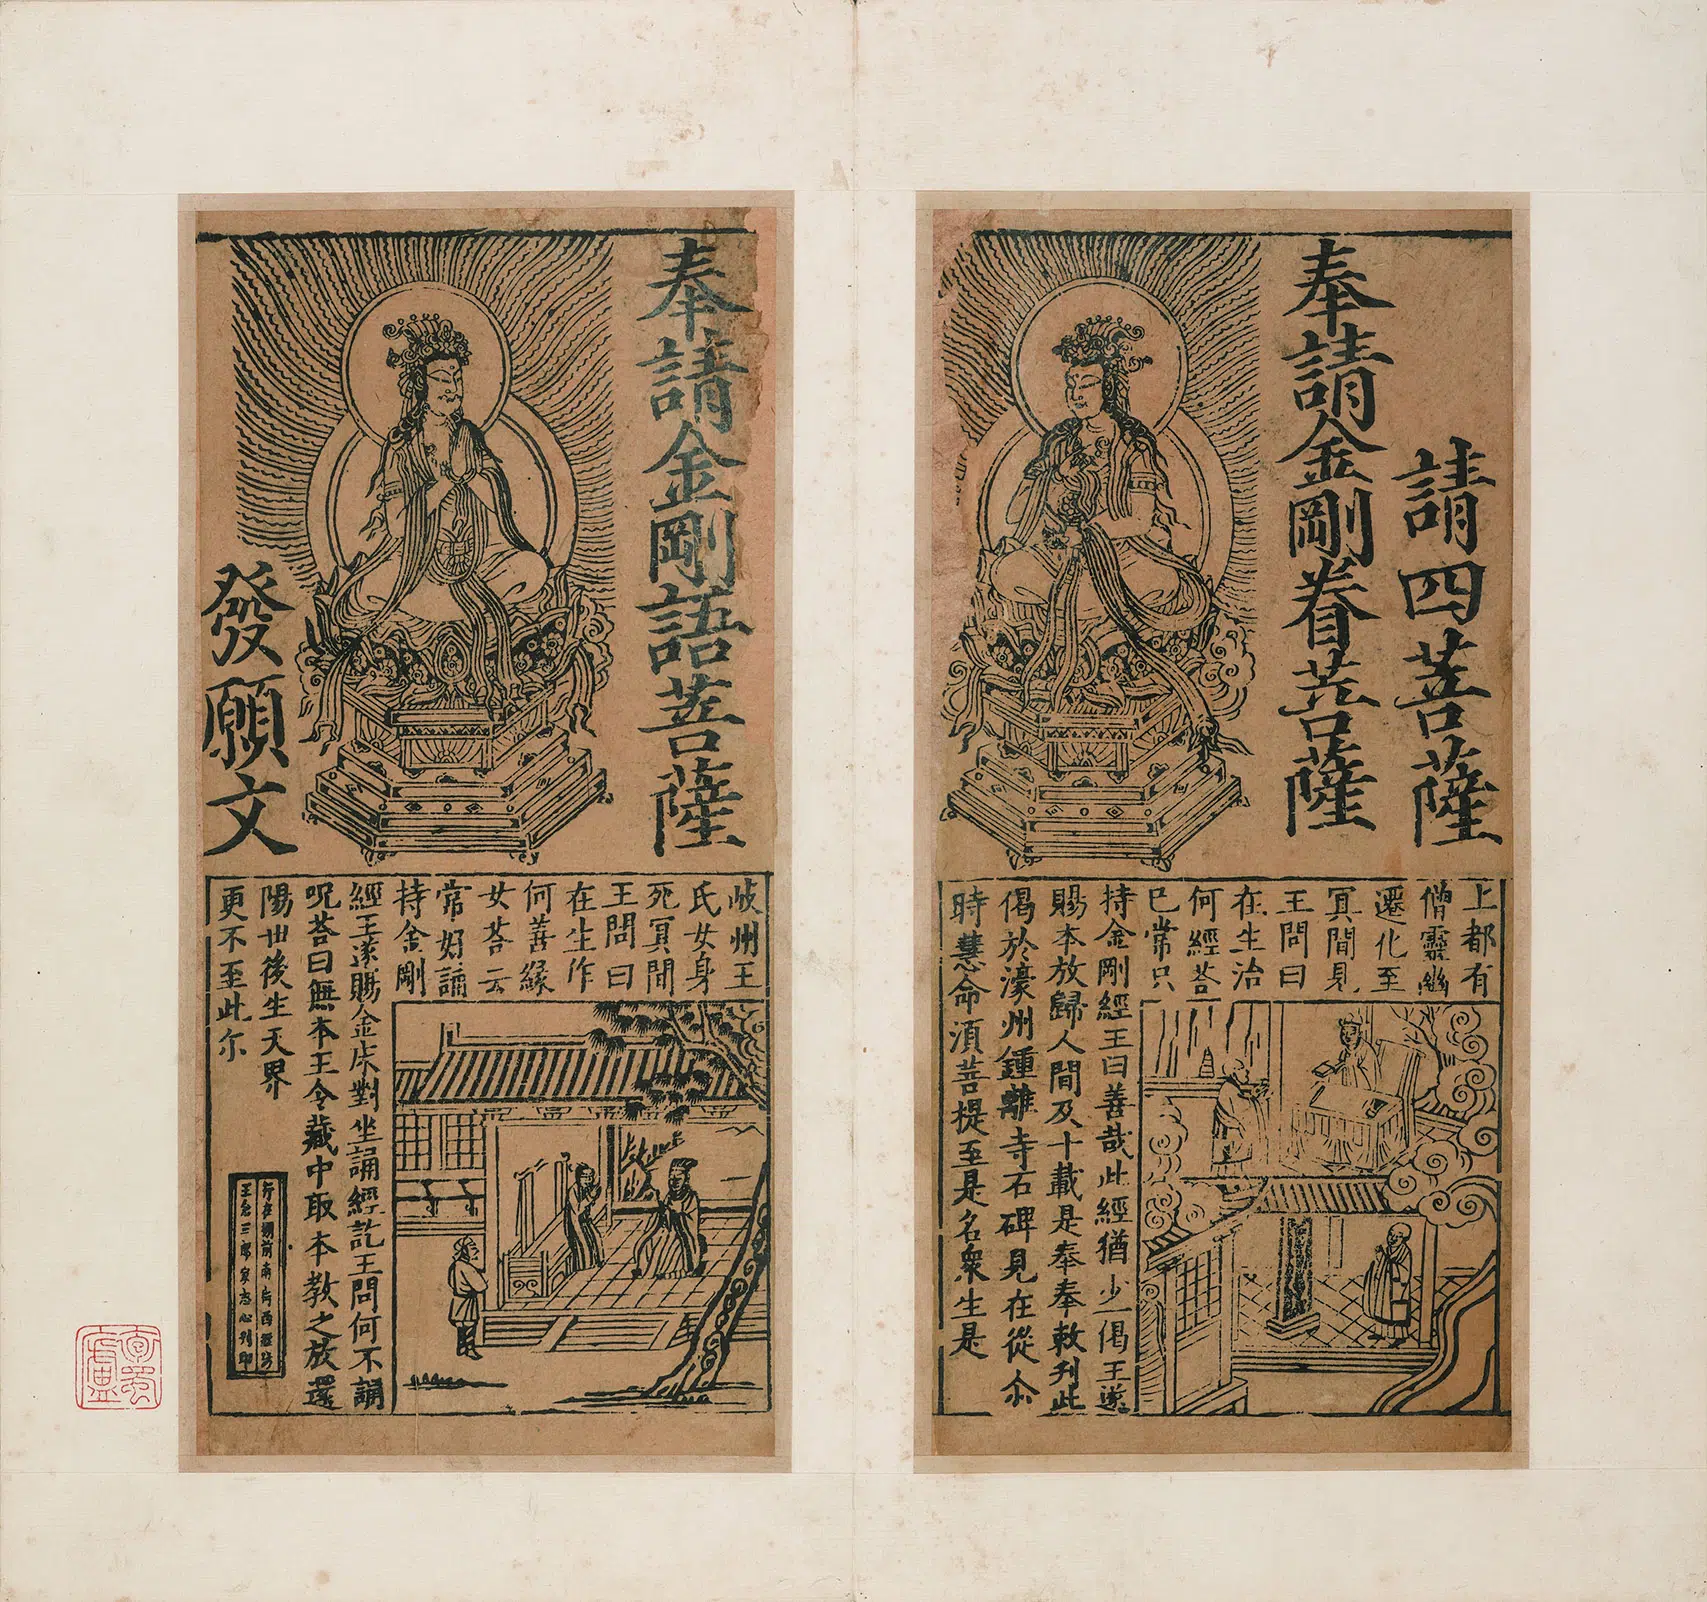 請四菩薩
奉請金剛眷菩薩
上都有
僧靈幽
遷化至
冥間見
王問曰
在生治
何經荅
巳常只
持金剛經王曰善哉此經猶少一偈王遂
賜本放歸人間及十載是奉奉敕刋此
偈於濠州鍾離寺石碑見在從尒
時慧命須菩提至是名衆生是
奉請金剛語菩薩
發願文
岐州王
氏女身
死冥間
王問曰
在生作
何善緣
女荅云
常好誦
持金剛
經王遂賜金床對坐誦經訖王問何不誦
呪荅曰無本王令藏中取本教之放還
陽世後生天界
更不至此尒
行在棚前南街西經坊
王念三郎家志心刋印